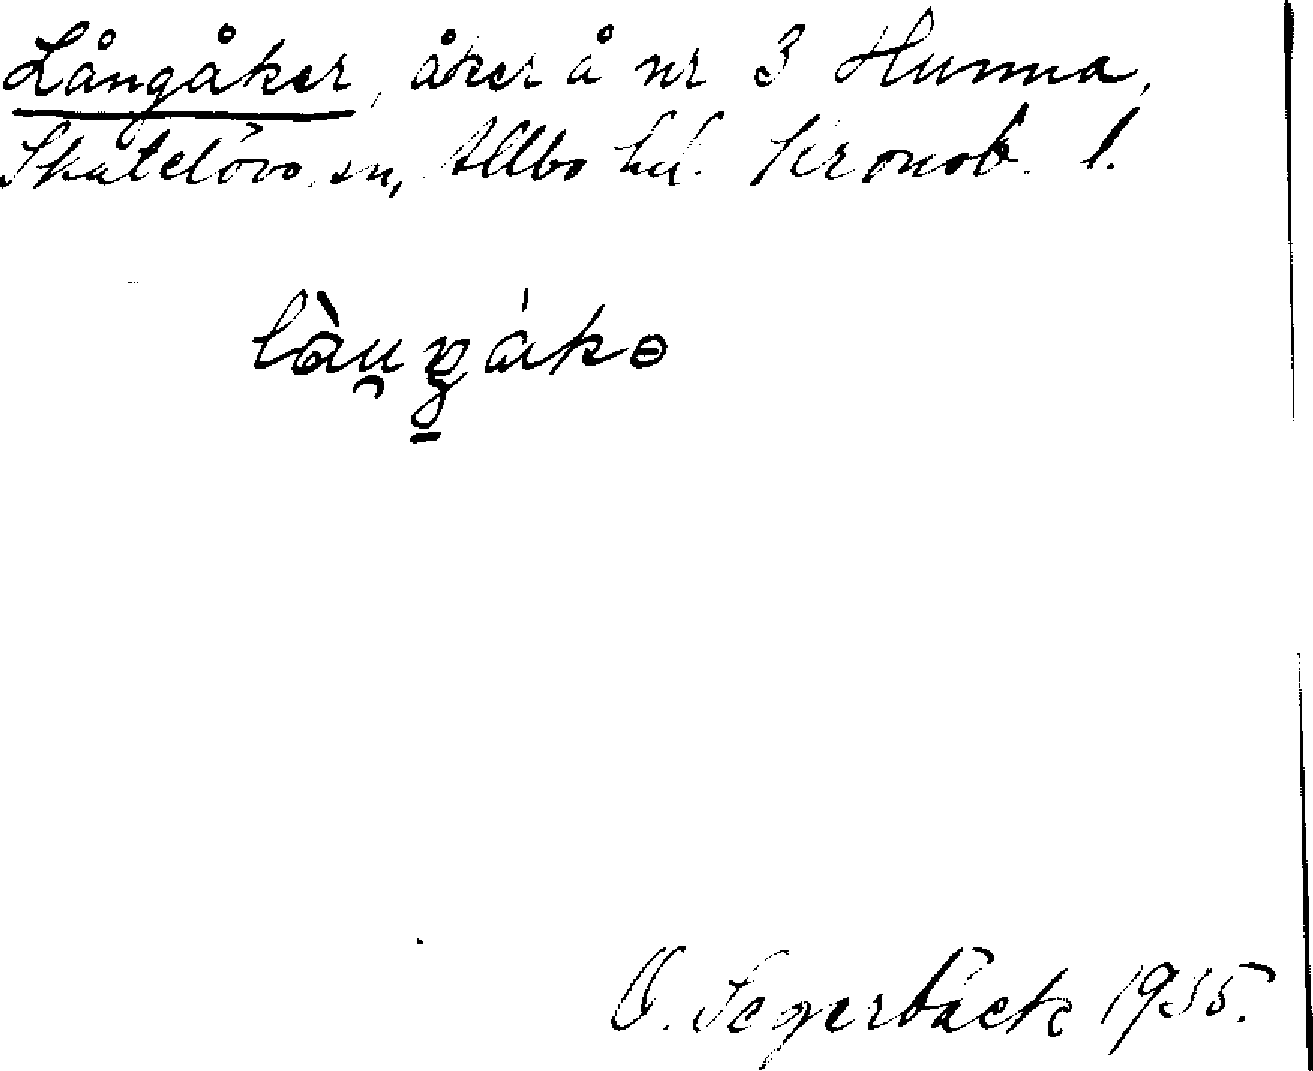 Långåker, åker å nr 3 Hunna,
Skatelövs sn, Allbo hd. Kronob. l.
Segerbäck 1935.